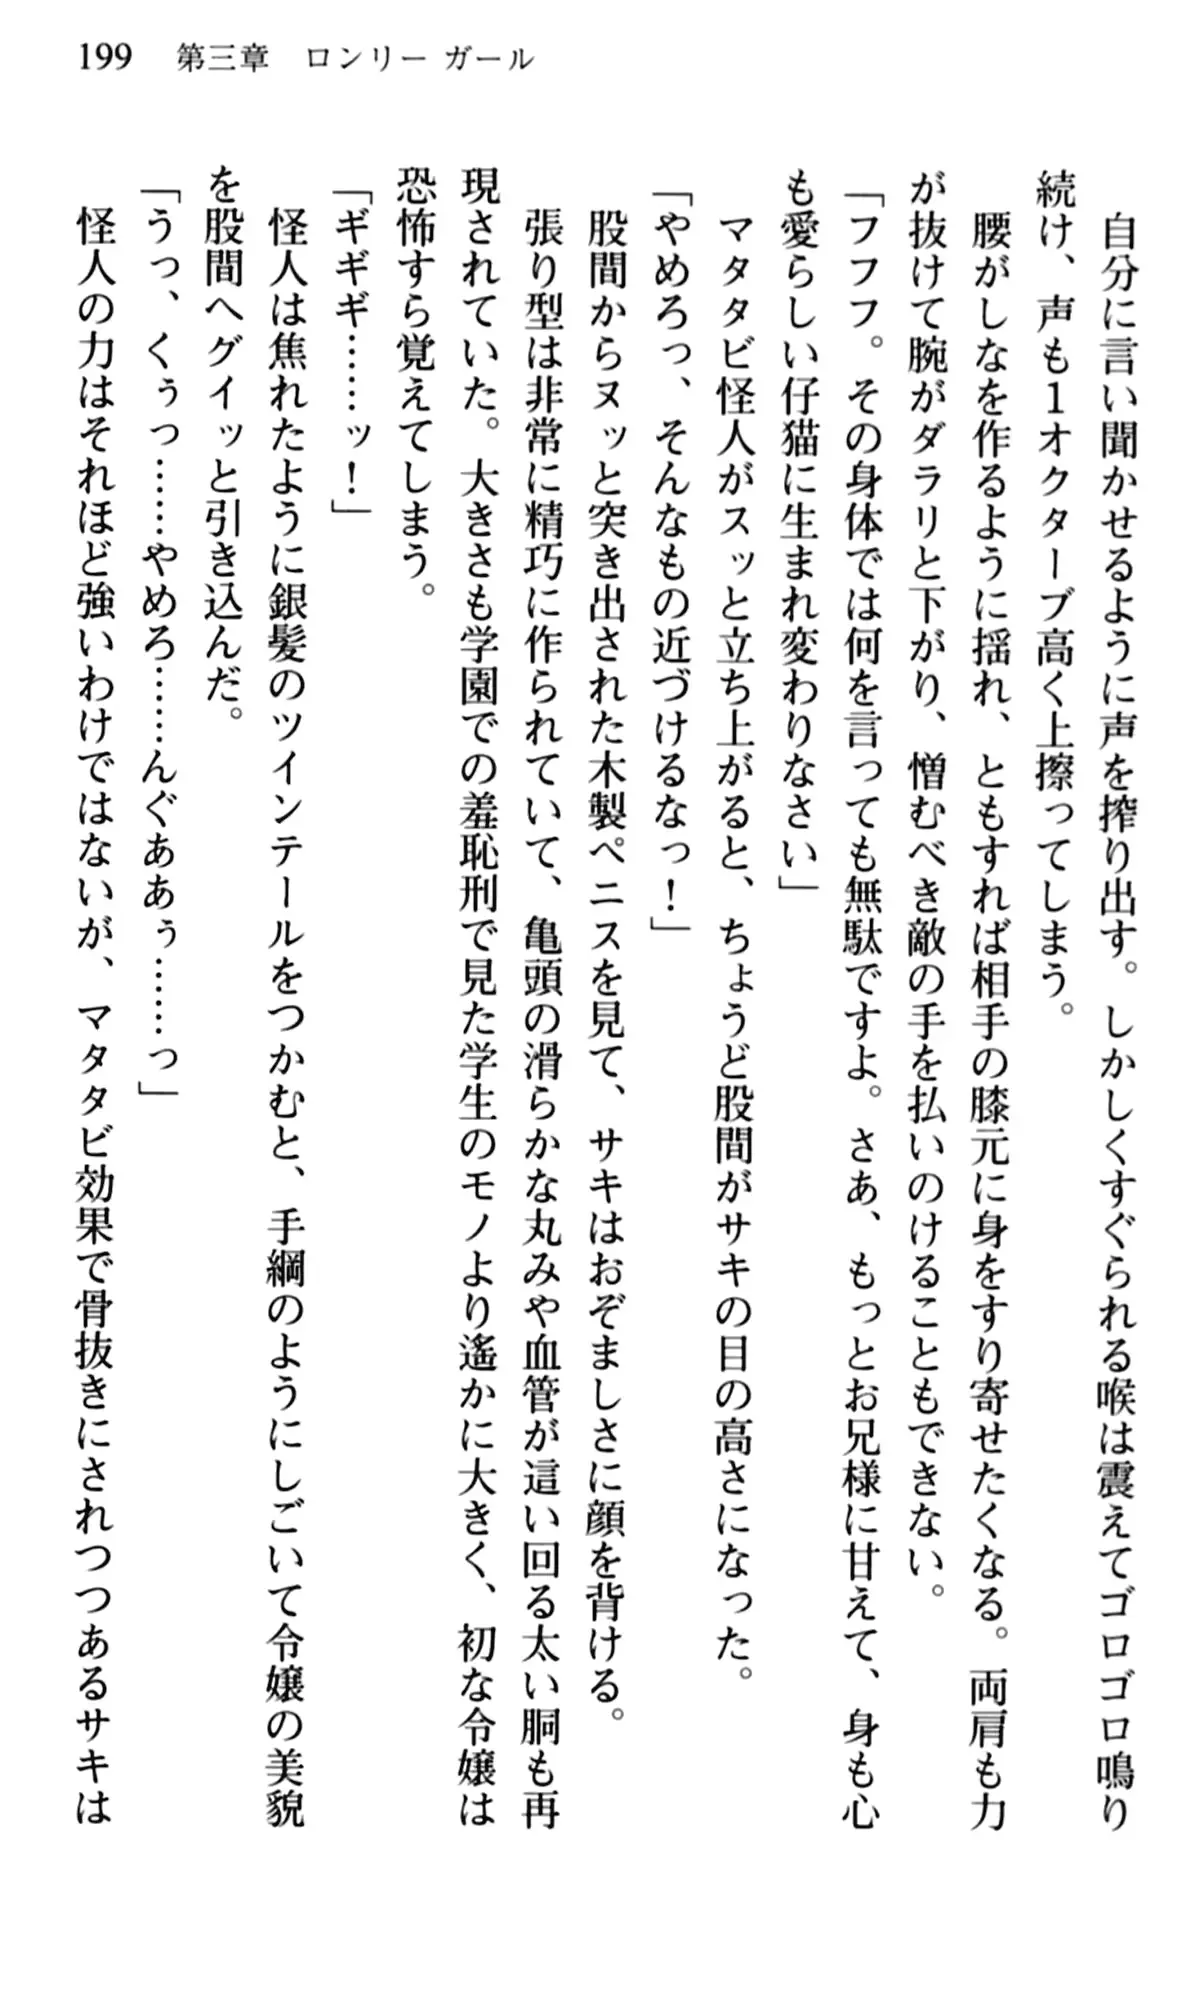 199 第三章 ロンリー ガール
自分に言い聞かせるように声を搾り出す。しかしくすぐられる喉は震えてゴロゴロ鳴り
続け、声も1オクターブ高く上擦ってしまう。
腰がしなを作るように揺れ、ともすれば相手の膝元に身をすり寄せたくなる。両肩も力
が抜けて腕がダラリと下がり、憎むべき敵の手を払いのけることもできない。
「フフフ。その身体では何を言っても無駄ですよ。さあ、もっとお兄様に甘えて、身も心
も愛らしい仔猫に生まれ変わりなさい」
マタタビ怪人がスッと立ち上がると、ちょうど股間がサキの目の高さになった。
「やめろっ、そんなもの近づけるなっ！」
股間からヌッと突き出された木製ペニスを見て、サキはおぞましさに顔を背ける。
張り型は非常に精巧に作られていて、亀頭の滑らかな丸みや血管が這い回る太い胴も再
現されていた。大きさも学園での羞恥刑で見た学生のモノより遙かに大きく、初な令嬢は
恐怖すら覚えてしまう。
「ギギギ……ッ！」
怪人は焦れたように銀髪のツインテールをつかむと、手綱のようにしごいて令嬢の美貌
を股間へグイッと引き込んだ。
「うっ、くぅっ……やめろ……んぐああぅ……っ」
怪人の力はそれほど強いわけではないが、マタタビ効果で骨抜きにされつつあるサキは